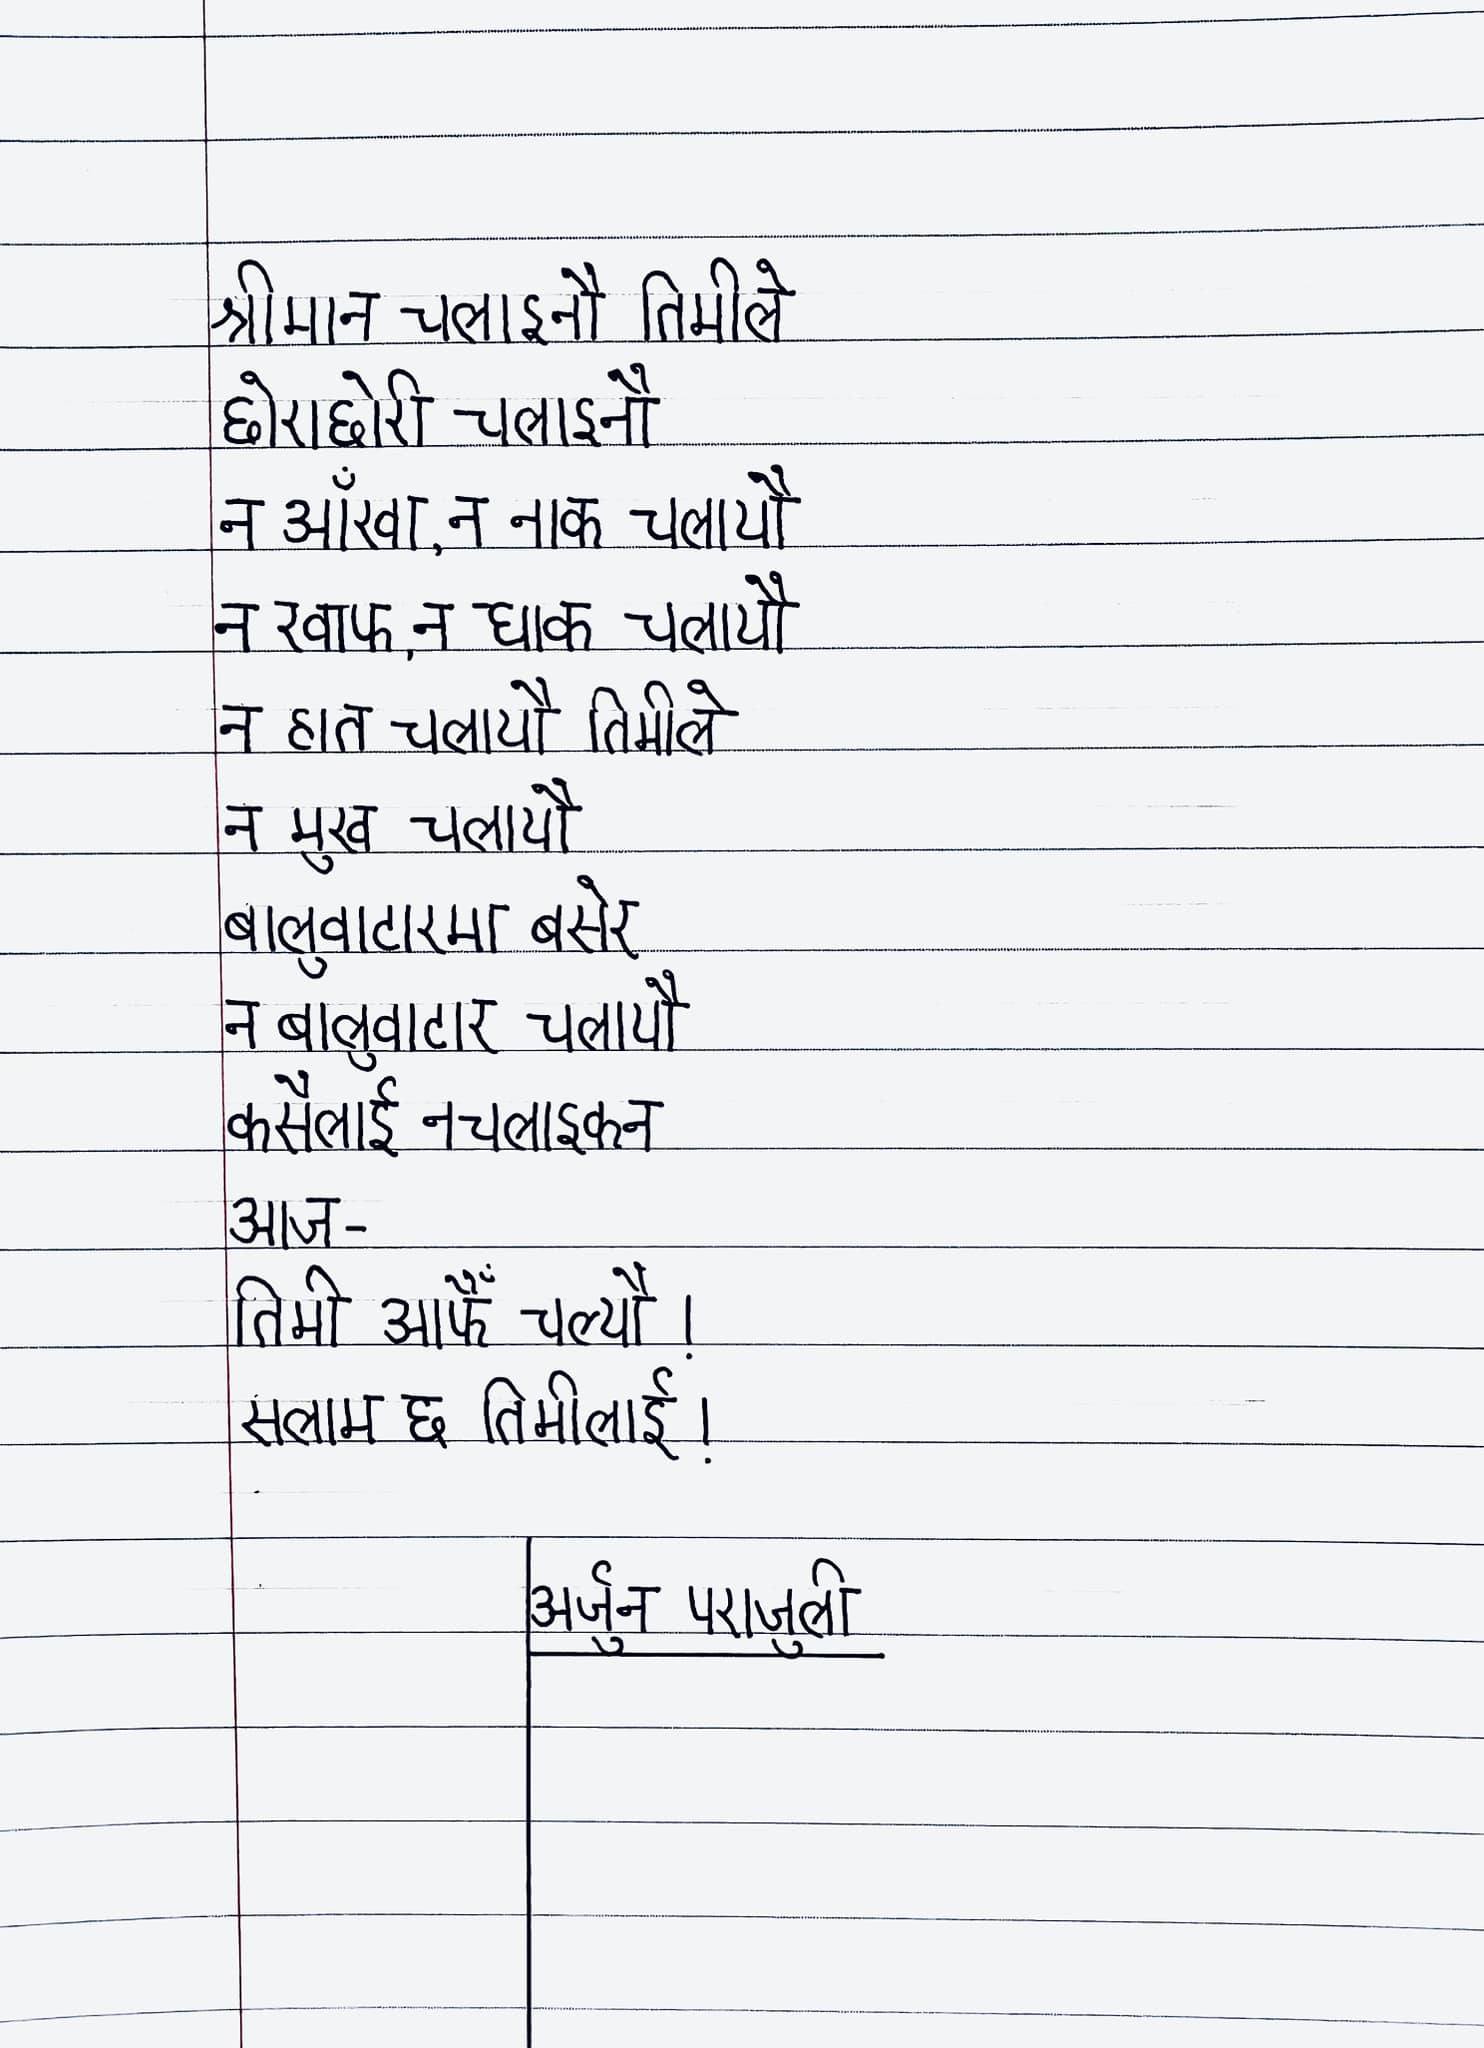 श्रीमान चलाइनौ तिमीले
छोराछोरी चलाइनौ
न आँखा, न नाक चलायौ
न रवाफ, न धाक चलायौ
न हात चलायौ तिमीले
न मुख चलायौ
बालुवाटारमा बसेर
न बालुवाटार चलायौ
कसैलाई नचलाइकन
आज-
तिमी आफैँ चल्यौ !
सलाम छ तिमीलाई !
अर्जुन पराजुली